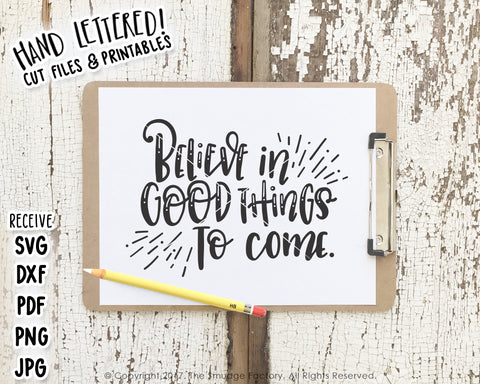 HAND LETTERED!
CUT FILES & PRINTABLES
BELIEVE in
GOOD THINGS
TO COME.
RECEIVE:
SVG
DXF
PDF
PNG
JPG
HB
© Copyright 2017. The Smudge Factory. All Rights Reserved.